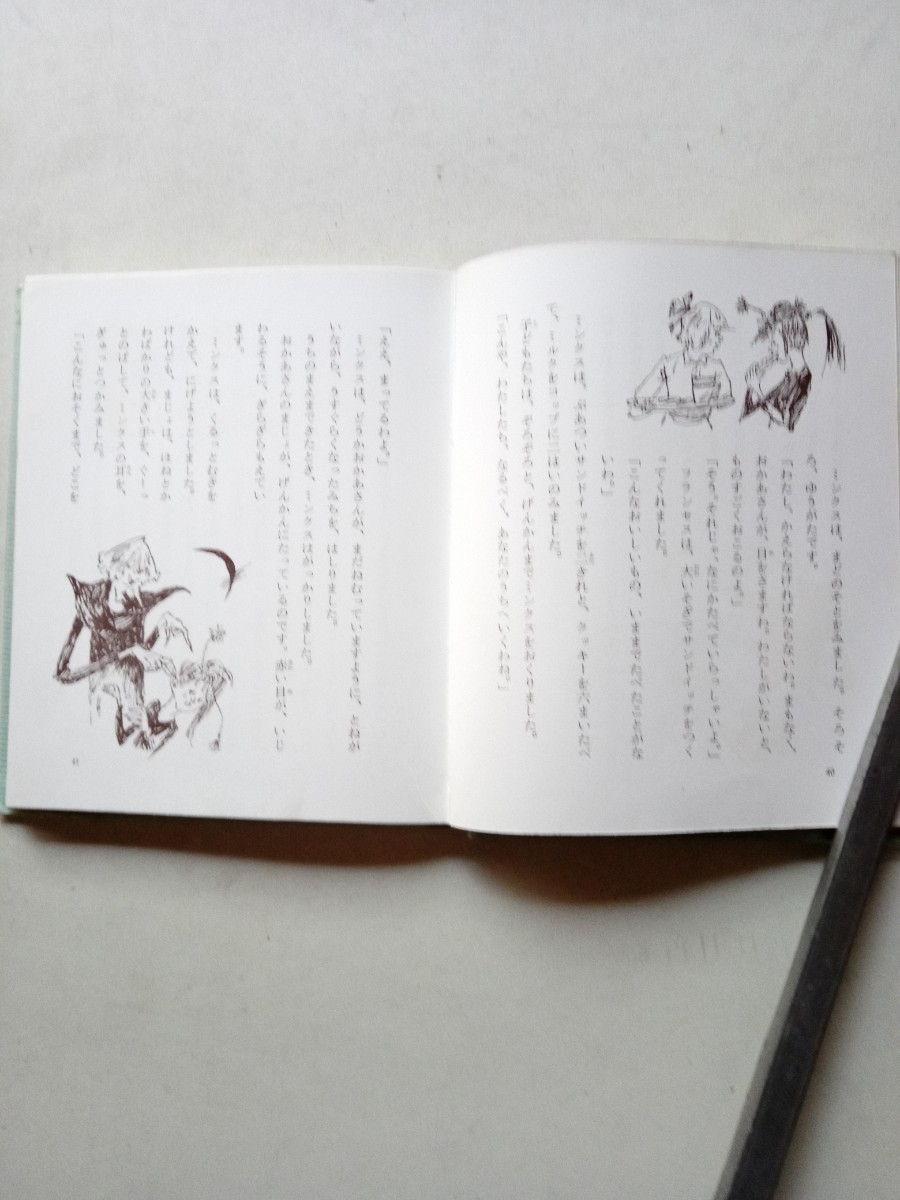 ミンクスは、まどのそとをみました。そろそ
ろ、ゆうがたです。
「わたし、かえらなければならないわ。まもなく
おかあさんが、目をさますわ。わたしがいないと、
ものすごくおこるのよ。」
「そう。それじゃ、なにかたべていらっしゃいよ。」
フランセスは、大いそぎでサンドイッチをつく
ってくれました。
「こんなおいしいもの、いままでたべたことがな
いわ。」
ミンクスは、ぶあついサンドイッチを
で、ミルクをコップに二はいのみました。
子どもたちは、そのあと、げんかんまでミンクスをおくりました。
「こんや、わたしたち、なるべく、あなたのうちへいくわね。」
40
「ええ、まってるわよ。」
ミンクスは、どうかおかあさんが、まだねむっていますように、とねが
いながら、うすぐらくなったみちを、はしりました。
うちのまえまできたとき、ミンクスはがっかりしました。
おかあさんのまじょが、げんかんにたっているのです。赤い目が、いじ
わるそうに、ぎらぎらもえてい
ます。
ミンクスは、くるっとむきを
かえて、にげようとしました。
けれども、まじょは、ほねとか
わばかりの大きい手を、ぐーっ
とのばして、ミンクスの耳を、
ぎゅっとつかみました。
「こんなにおそくまで、どこを
41